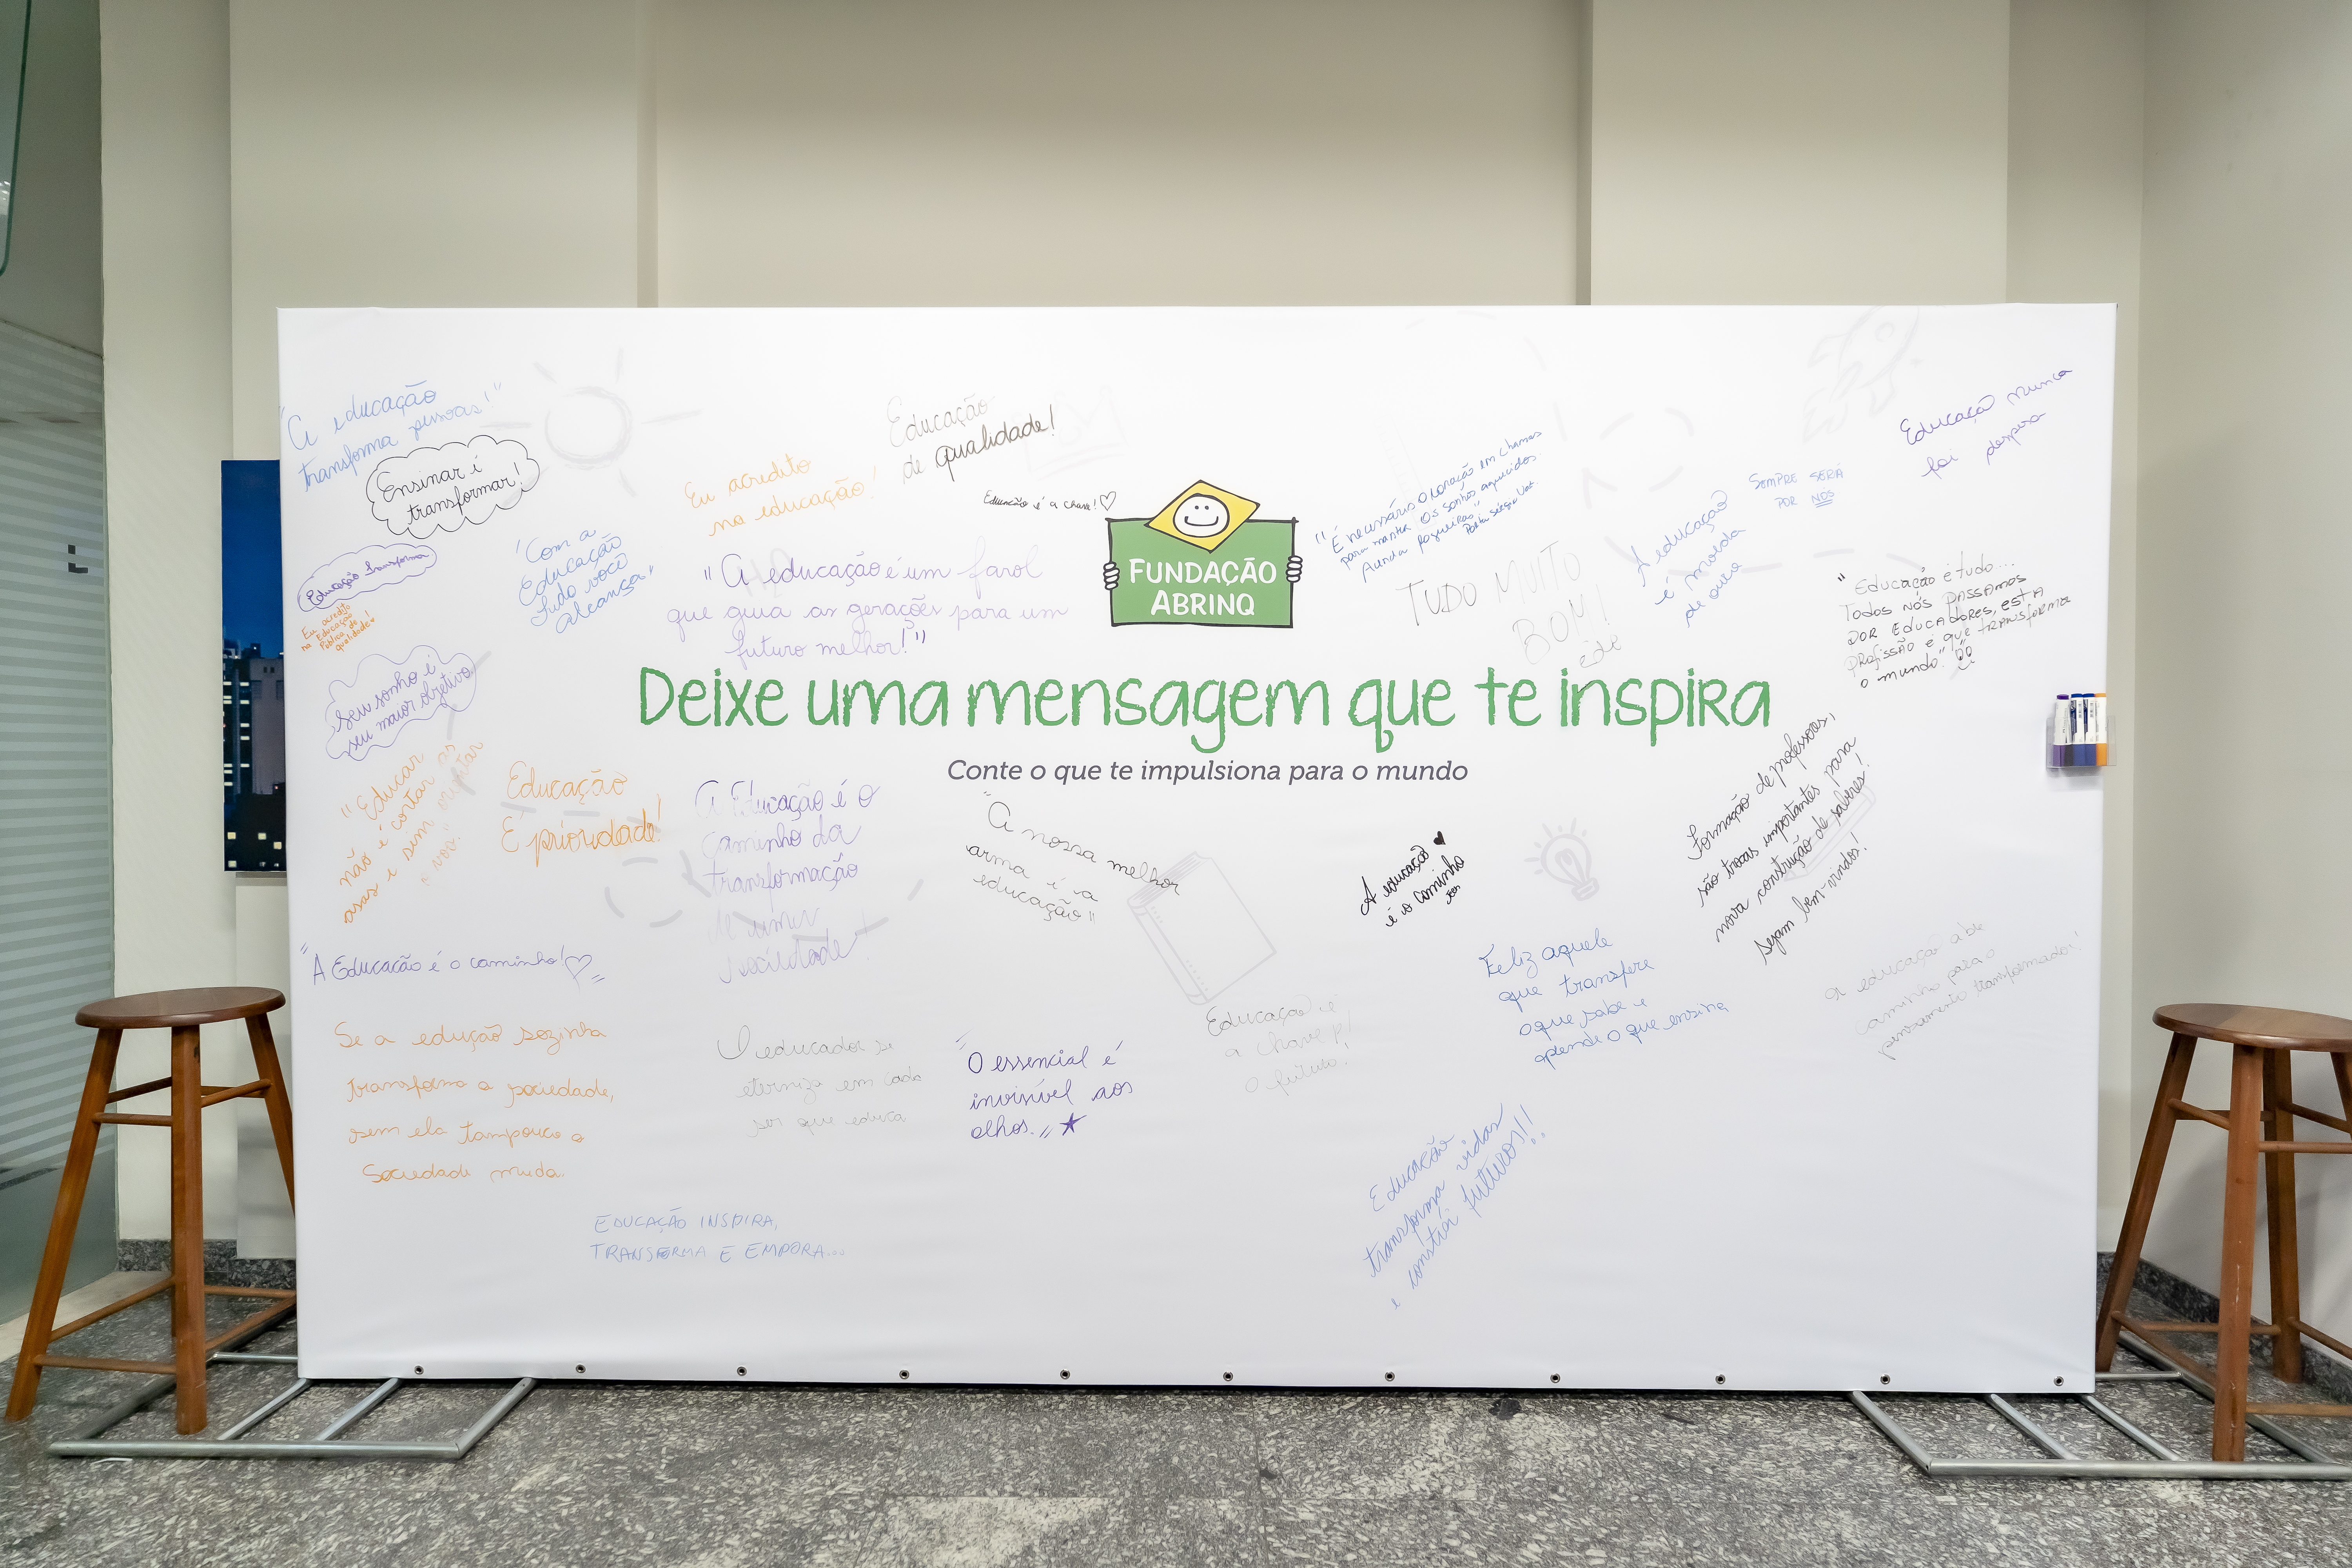 "A educação
transforma pessoas!"
Ensinar é
transformar!
Educação transforma
Eu acredito
na Educação
Pública de
qualidade
"Com a
Educação
tudo você
alcança"
Seu sonho é
seu maior objetivo
Eu acredito
na educação!
Educação
de qualidade!
Educação é a chave!
"A educação é um farol
que guia as gerações para um
futuro melhor!"
FUNDAÇÃO
ABRINQ
"É necessário o coração em chamas
para manter os sonhos aquecidos.
Acenda fogueiras"
TUDO MUITO
BOM!
A educação
é moeda
de ouro
SEMPRE SERÁ
POR NÓS
Educação nunca
foi despesa
"Educação é tudo...
Todos nós passamos
por educadores, esta
profissão é que transforma
o mundo"
Deixe uma mensagem que te inspira
Conte o que te impulsiona para o mundo
"Educar
não é cortar as
asas e sim orientar
o voo."
Educação
É prioridade!
A Educação é o
caminho da
transformação
de uma
sociedade!
"A nossa melhor
arma é a
educação"
A educação
é o caminho
Formação de professores,
são trocas importantes para
nova construção de saberes!
Sejam bem-vindos!
"A Educação é o caminho!"
Se a edução sozinha
transforma a sociedade,
sem ela tampouco a
Sociedade muda.
O educador se
eterniza em cada
ser que educa
"O essencial é
invisível aos
olhos."
Educação é
a chave p/
o futuro!
Feliz aquele
que transfere
o que sabe e
aprende o que ensina
A educação abre
caminho para o
pensamento transformador!
EDUCAÇÃO INSPIRA,
TRANSFORMA E EMPORA...
Educação
transforma vidas
e constrói futuros!!!